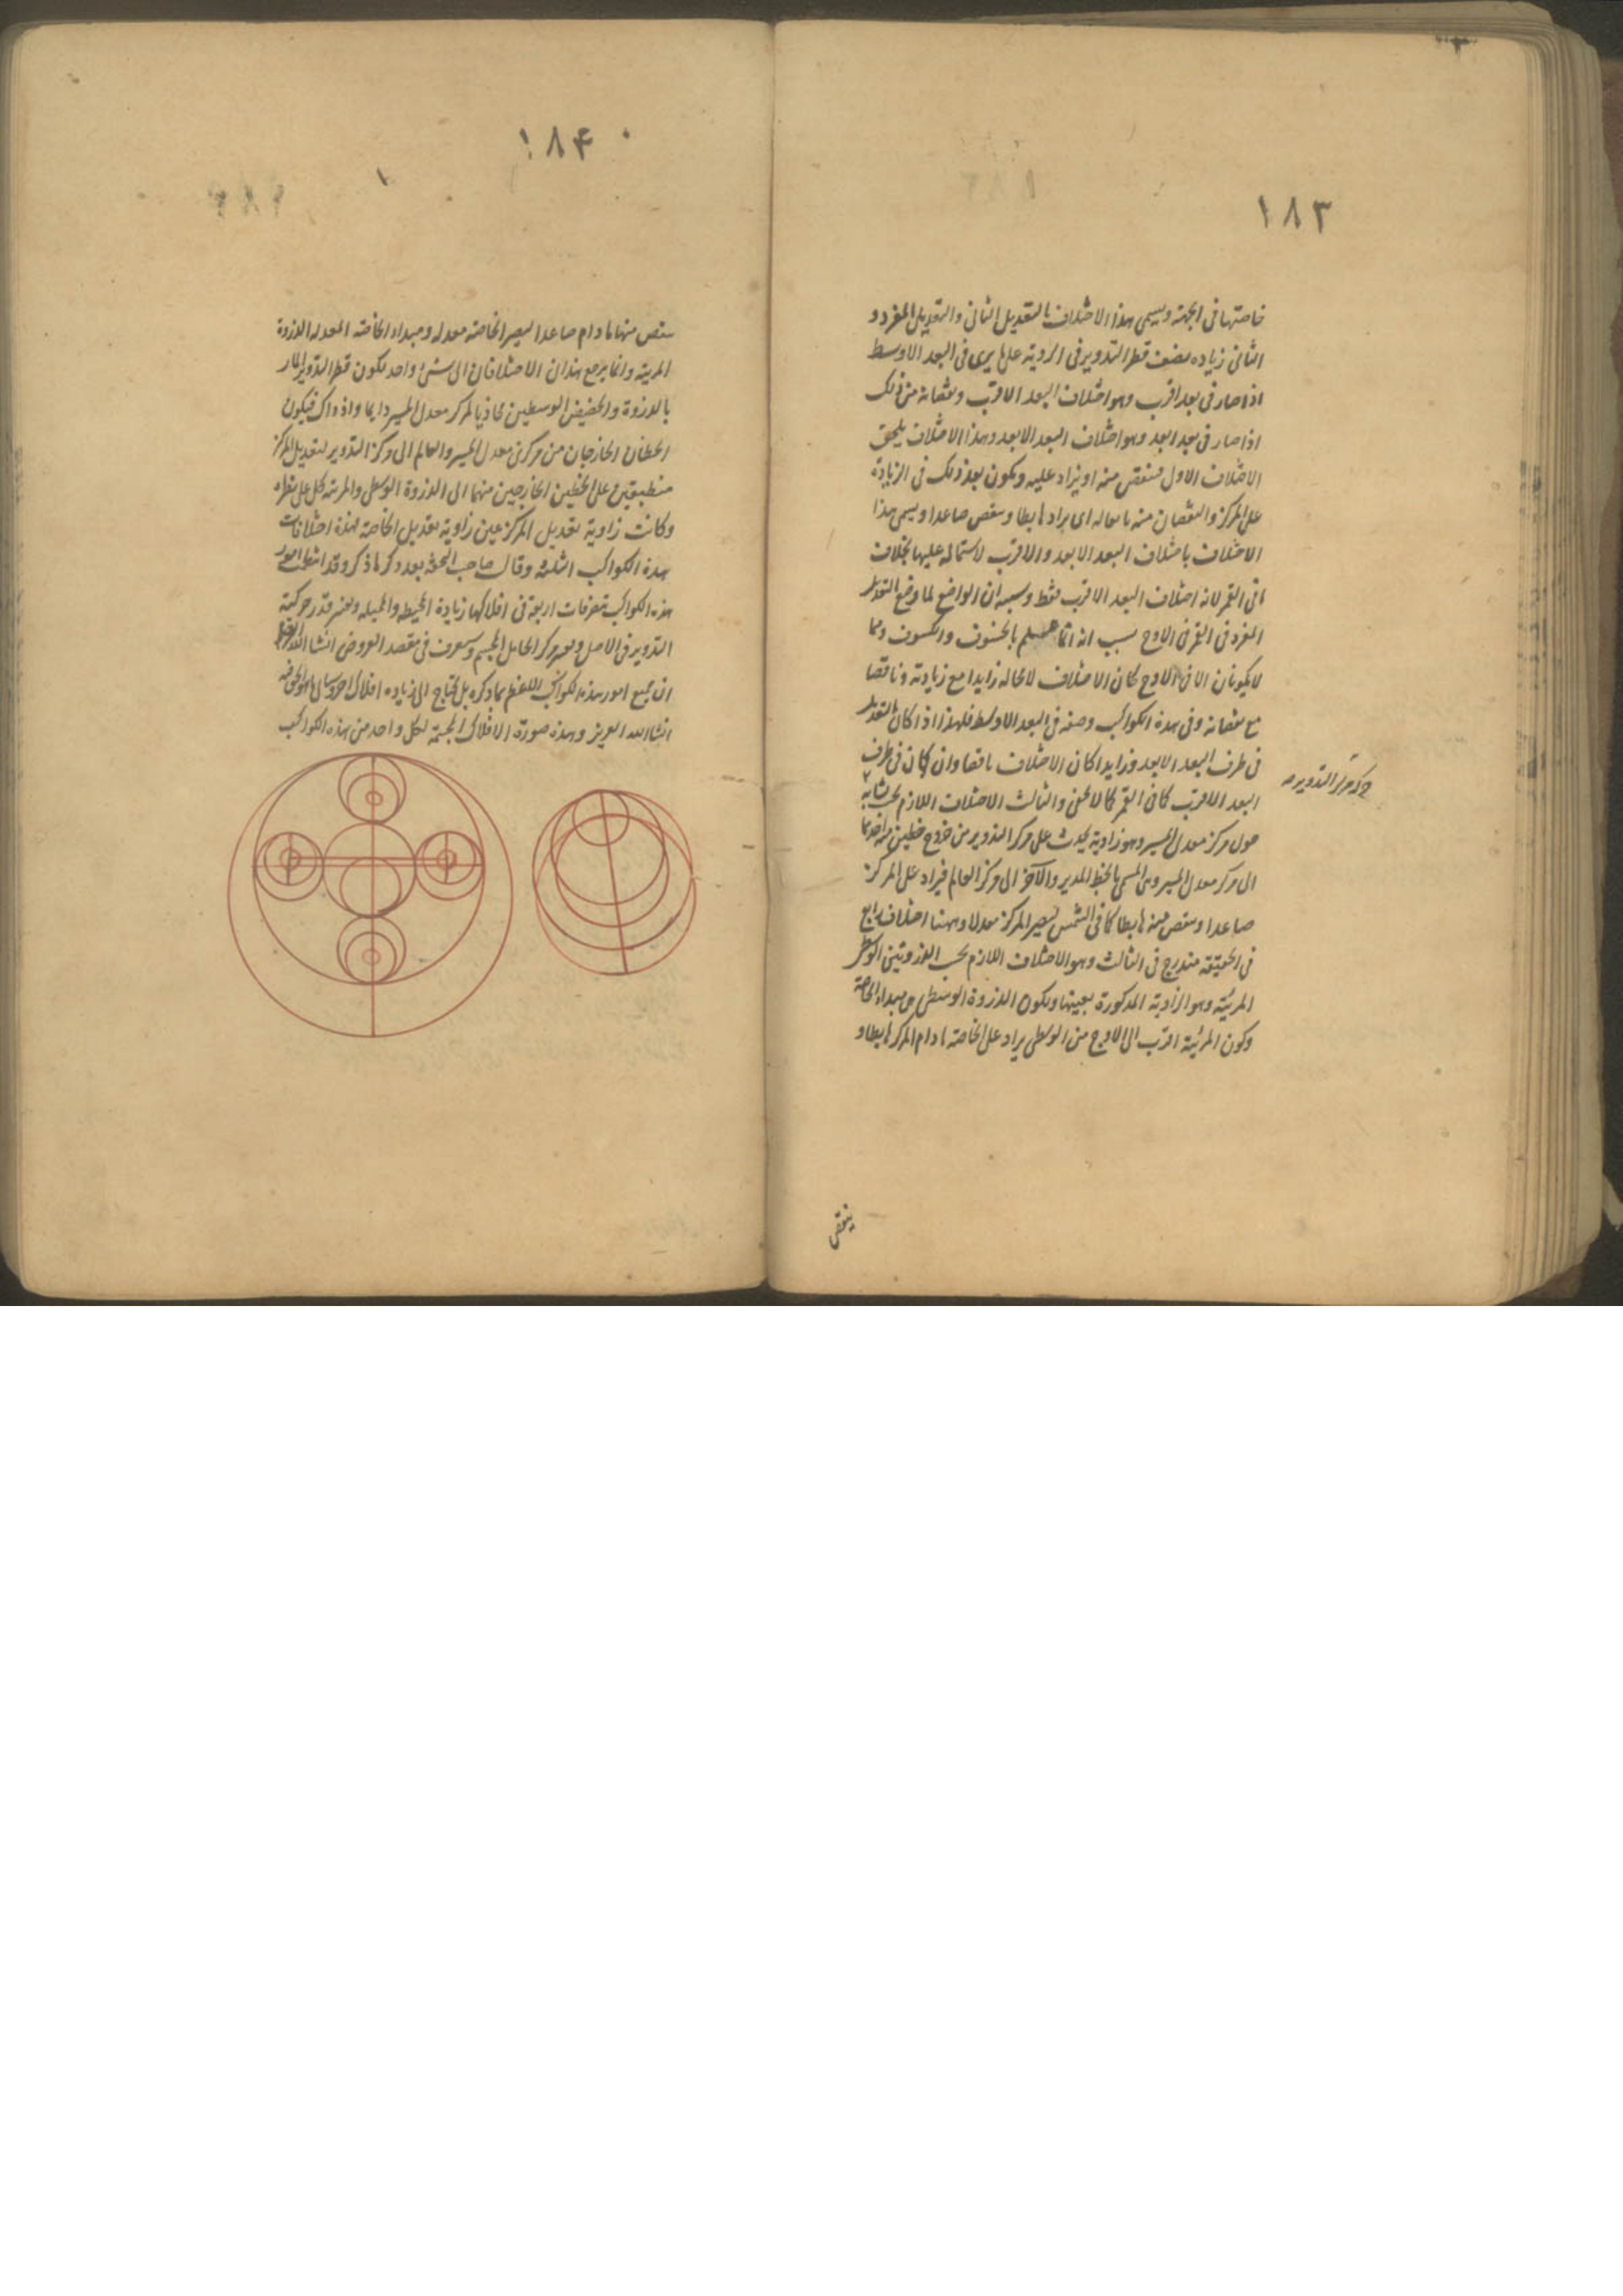 ١٨٣
خاصتها فى الجهة ويسمى هذا الاختلاف بالتعديل الثانى والتعديل المفرد و
الثانى زياده نصف قطر التدوير فى الروية على ما يرى فى البعد الاوسط
اذا صار فى بعد اقرب وهو اختلاف البعد الاقرب ونقصانه من ذلك
اذا صار فى بعد ابعد وهو اختلاف البعد الابعد وهذا الاختلاف يلحق
الاختلاف الاول فينقص منه او يزاد عليه ويكون بعد ذلك فى الزيادة
على المركز والنقصان منه تابعا له اى يزاد هابطا وينقص صاعدا ويسمى هذا
الاختلاف باختلاف البعد الابعد والاقرب لاشتماله عليها بخلاف
ما فى القمر لانه اختلاف البعد الاقرب فقط وسببه ان الواضع لما وضع التعديل
المفرد فى القمر فى الاوج بسبب انه انما يعلم بالخسوف والكسوف وهما
لا يكونان الا فى الاوج كان الاختلاف لا محاله زايدا مع زيادته وناقصا
مع نقصانه وفى هذه الكواكب وضعه فى البعد الاوسط فلهذا اذا كان التعديل
فى طرف البعد الابعد وزايدا كان الاختلاف ناقصا وان كان فى طرف
البعد الاقرب كان فى القمر كما لا يخفى والثالث الاختلاف اللازم بحسب تشابه
حول مركز معدل المسير وهو زاوية يحدث على مركز التدوير من خروج خطين منه احدهما
الى مركز معدل المسير وهى المسمى بالخط المدير والآخر الى مركز العالم فيزاد على المركز
صاعدا وينقص منه هابطا كما فى الشمس ليصير المركز معدلا وههنا اختلاف رابع
فى الحقيقة مندرج فى الثالث وهو الاختلاف اللازم بحسب الذروتين الوسطى
المرئية وهو الزاوية المذكورة بعينها ويكون الذروة الوسطى هى مبداء الخاصة
وكون المرئية اقرب الى الاوج من الوسطى يزاد على الخاصة ما دام المركز هابطا و
مركز التدوير
ينقص
١٨۴
ينقص منها ما دام صاعدا ليصير الخاصة معدله ومبداء الخاصة المعدله الذروة
المرئية وانما يرجع هذان الاختلافان الى شىء واحد لكون قطر التدوير المار
بالذروة والحضيض الوسطين محاذيا لمركز معدل المسير دايما واذ ذاك فيكون
الخطان الخارجان من مركزى معدل المسير والعالم الى مركز التدوير لتعديل المركز
منطبقين على الخطين الخارجين منهما الى الذروة الوسطى والمرئية كل على نظيره
وكانت زاوية تعديل المركز عين زاوية تعديل الخاصة فهذه اختلافات
هذه الكواكب الثلثة وقال صاحب التحفة بعد ذكر ما ذكر وقد انتظمت امور
هذه الكواكب بتصرفات اربعة فى افلاكها زيادة المحيطة والمميله وتغير قدر حركية
التدوير فى الاصل وتغير مركز الحامل المجسم وستعرف فى مقصد العروض انشا الله
ان جميع امور هذه الكواكب لا ينتظم بما ذكره بل يحتاج الى زياده افلاك اخر وسيأتى ما هو الحق فيه
انشا الله العزيز وهذه صورة الافلاك المجسمة لكل واحد من هذه الكواكب